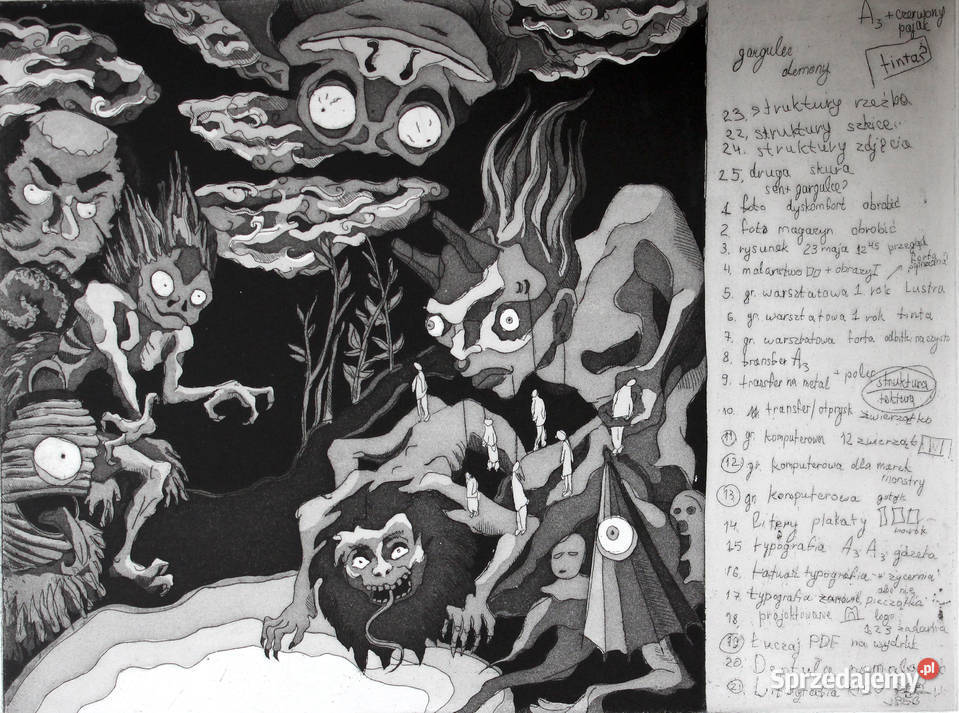 A3 + czerwony
pająk
gargulec
demony
tintaś
23. struktury rzeźba
22. struktury szkice
24. struktury zdjęcia
25. druga skura
sent gargulec?
1 foto dyskomfort obrobić
2 foto magazyn obrobić
3. rysunek 23 maja 12 45 przegląd
4. malarstwo + obrazy
5. gr. warsztatowa 1 rok Lustra
6. gr. warsztatowa 1 rok tinta
7. gr. warsztatowa forta odbitki na czysto
8. transfer A3
9. transfer na metal + polec
struktura
tektura
10. transfer/otprysk zwierzątko
11 gr. komputerowa 12 zwierząt
12. gr. komputerowa dla marek
monstry
13 gr. komputerowa gotyk
14. Litery plakaty
15 typografia A3 A3 gazeta
16. Tatuaż typografia
17. typografia pieczątka
18. projektowane M logo
1 2 3 zadania
19 Łuczaj PDF na wydruk
20.
21
Sprzedajemy.pl